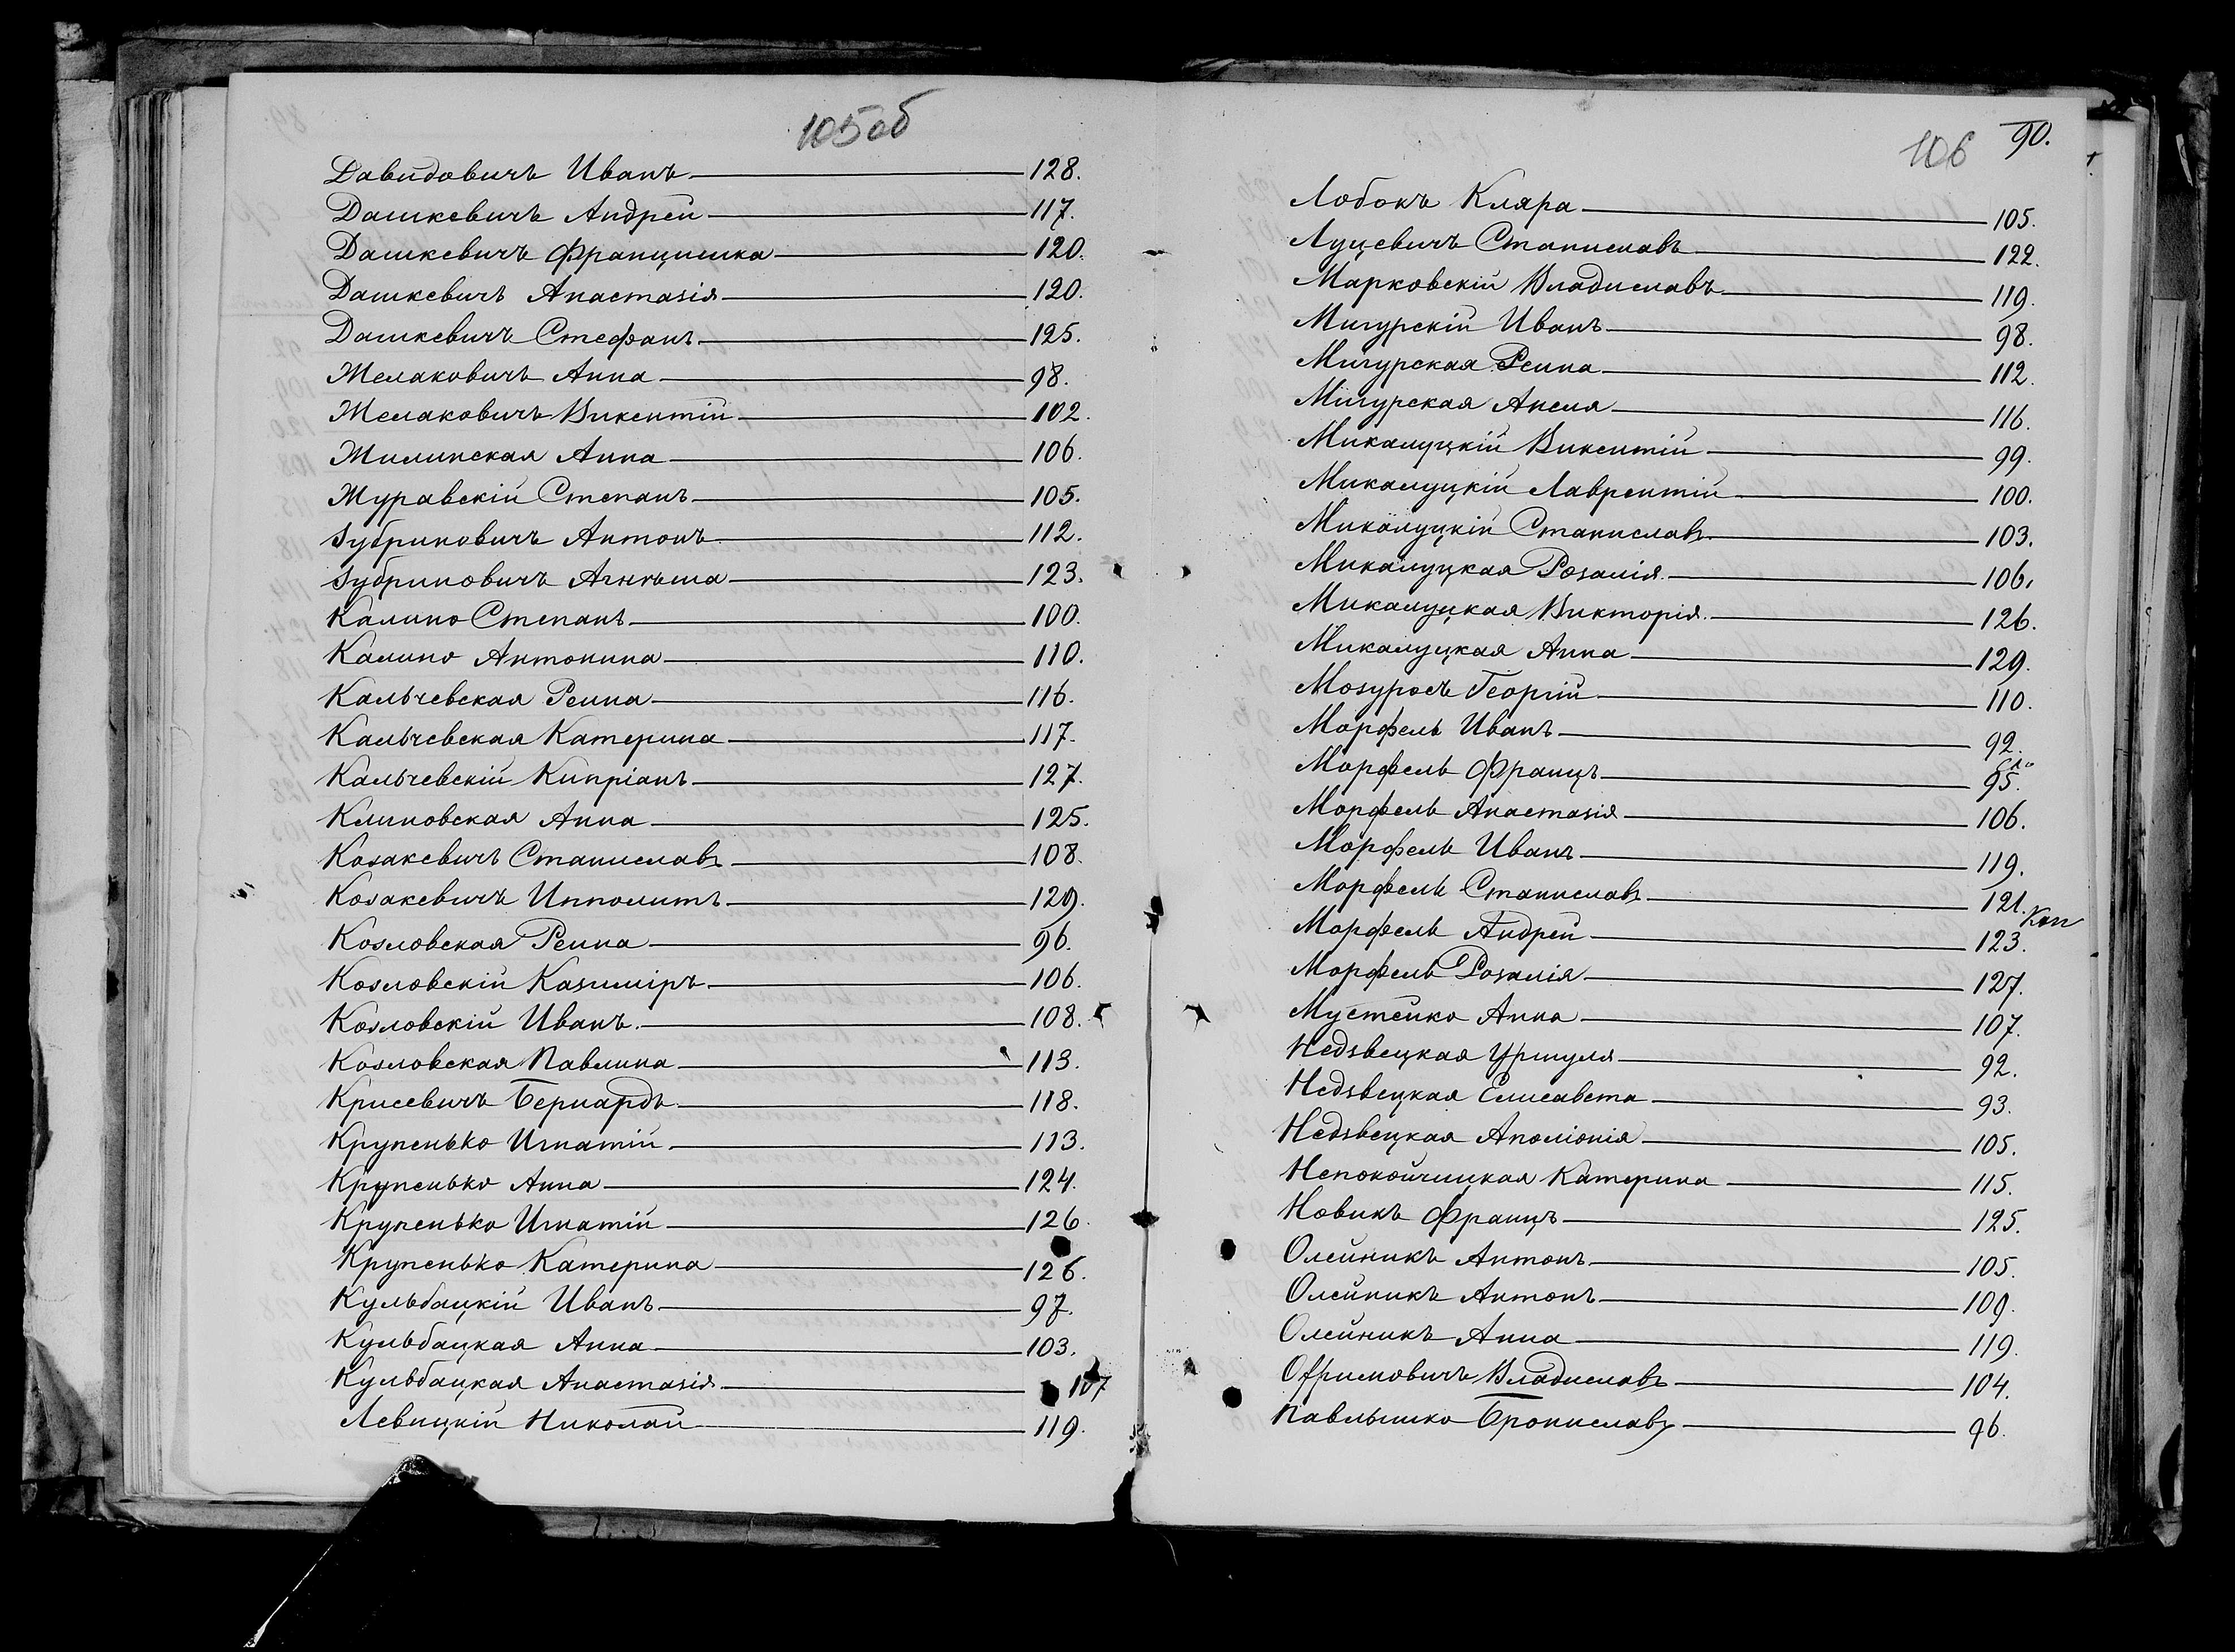 105об
Давидовичъ Иванъ 128.
Дашкевичъ Андрей 117.
Дашкевичъ Францишка 120.
Дашкевичъ Анастазія 120.
Дашкевичъ Стефанъ 125.
Желаковичъ Анна 98.
Желаковичъ Викентій 102.
Жилинская Анна 106.
Журавскій Степанъ 105.
Зубриновичъ Антонъ 112.
Зубриновичъ Агнѣшка 123.
Калино Степанъ 100.
Калино Антонина 110.
Кальчевская Регина 116.
Кальчевская Катерина 117.
Кальчевскій Кипріанъ 127.
Климовская Анна 125.
Козакевичъ Станиславъ 108.
Козакевичъ Ипполитъ 129.
Козловская Регина 96.
Козловскій Казиміръ 106.
Козловскій Иванъ 108.
Козловская Павлина 113.
Крисевичъ Бернардъ 118.
Крупенько Игнатій 113.
Крупенько Анна 124.
Крупенько Игнатій 126.
Крупенько Катерина 126.
Кульбацкій Иванъ 97.
Кульбацкая Анна 103.
Кульбацкая Анастазія 107
Левицкій Николай 119.
106 90.
Лобокъ Кляра 105.
Луцевичъ Станиславъ 122.
Марковскій Владиславъ 119.
Мигурскій Иванъ 98.
Мигурская Регина 112.
Мигурская Анеля 116.
Микалуцкій Викентій 99.
Микалуцкій Лаврентій 100.
Микалуцкій Станиславъ 103.
Микалуцкая Розалія 106.
Микалуцкая Викторія 126.
Микалуцкая Анна 129.
Мозуросъ Георгій 110.
Морфель Иванъ 92.
Морфель Францъ 95.
Морфель Анастазія 106.
Морфель Иванъ 119.
Морфель Станиславъ 121.
Морфель Андрей 123. Коп
Морфель Розалія 127.
Мустейко Анна 107.
Недзвецкая Уршуля 92.
Недзвецкая Елисавета 93.
Недзвецкая Аполіонія 105.
Непокойчицкая Катерина 115.
Новикъ Францъ 125.
Олейникъ Антонъ 105.
Олейникъ Антонъ 109.
Олейникъ Анна 119.
Офримовичъ Владиславъ 104.
Павлышко Брониславъ 96.